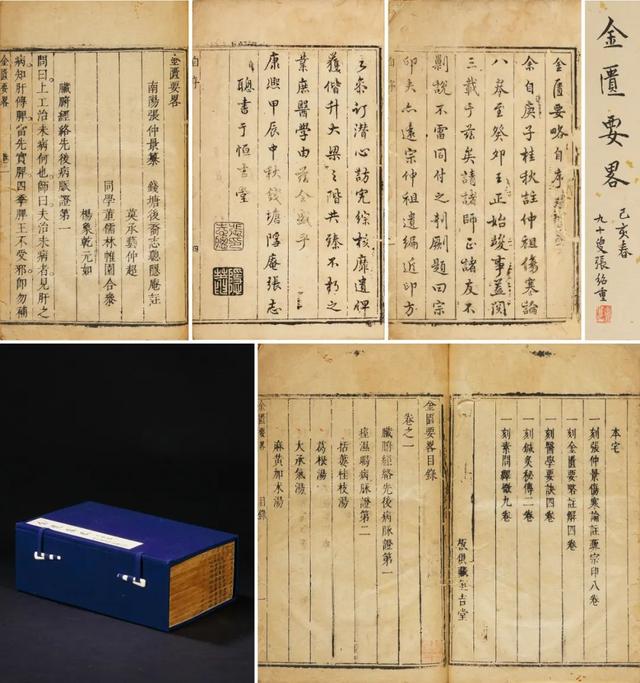 金匱要畧
己亥春
九十叟張紹重
金匱要略自序
余自庚子桂秋註仲祖傷寒論
八 至癸卯王正始竣事蓋閱
三載于茲矣請諸師正諸友不
勦說不雷同付之剞劂題曰宗
印夫亦遠宗仲祖遺編近印方
自序
參訂潛心訪究綜核靡遺俾
獲偕升大梁之階共臻不朽之
業庶醫學由茲全盛乎
康熙甲辰中秋錢塘隱庵張志
聰書于恒吉堂
自序
四
金匱要畧
南陽張仲景纂 錢塘後裔志聰隱庵註
莫承藝仲超
同學董儒林帷園合參
楊象乾元如
臟腑經絡先後病脈證第一
問曰上工治未病何也師曰夫治未病者見肝之
病知肝傳脾當先實脾四季脾王不受邪即勿補
金匱要畧
本宅
一刻張仲景傷寒論註疏宗印八卷
一刻金匱要畧註解四卷
一刻醫學要訣四卷
一刻鍼灸秘傳二卷
一刻素問釋徵九卷
板俱藏恒吉堂
金匱要畧目錄
卷之一
臟腑經絡先後病脈證第一
痙濕暍病脈證第二
栝蔞桂枝湯
葛根湯
大承氣湯
麻黃加朮湯
金匱要畧
目錄